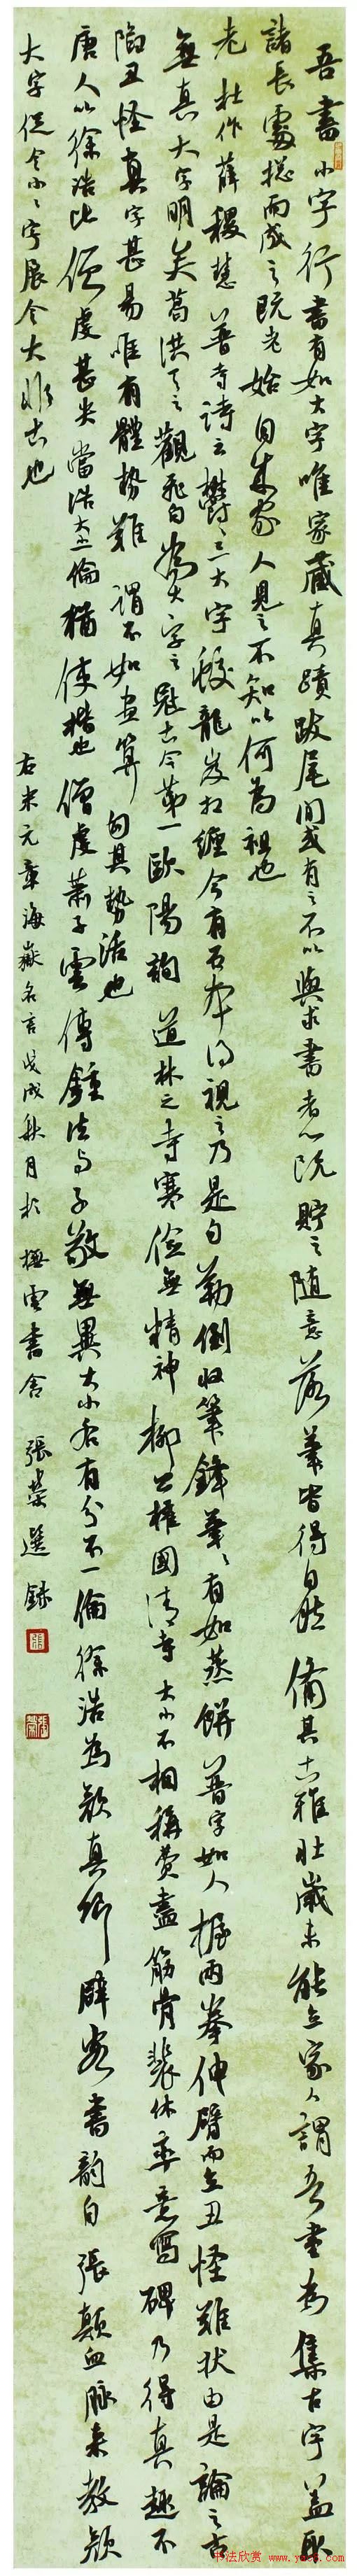 吾書小字行書有如大字唯家藏真蹟跋尾間或有之不以與求書者心既貯之隨意落筆皆得自然備其古雅壯歲未能立家人謂吾書為集古字蓋取
諸長處總而成之既老始自成家人見之不知以何為祖也
老杜作薛稷慧普寺詩云鬱鬱三大字蛟龍岌相纏今有石本得視之乃是勾勒倒收筆鋒筆筆有如蒸餅普字如人握兩拳伸臂而立丑怪難狀由是論之古
無真大字明矣葛洪天之觀飛白為大字之冠古今第一歐陽詢道林之寺寒儉無精神柳公權國清寺大小不相稱費盡筋骨裴休率意寫碑乃得真趣不
陷丑怪真字甚易唯有體勢難謂不如畫算勻其勢活也
唐人以徐浩比僧虔甚失當浩大小一倫猶吏楷也僧虔蕭子雲傳鍾法與子敬無異大小各有分不一倫徐浩為顏真卿辟客書韻自張顛血脈來教顏
大字促令小小字展令大非古也
右米元章海嶽名言戊戌秋月於撫雲書舍張榮選錄
書法欣賞 www.yac8.com